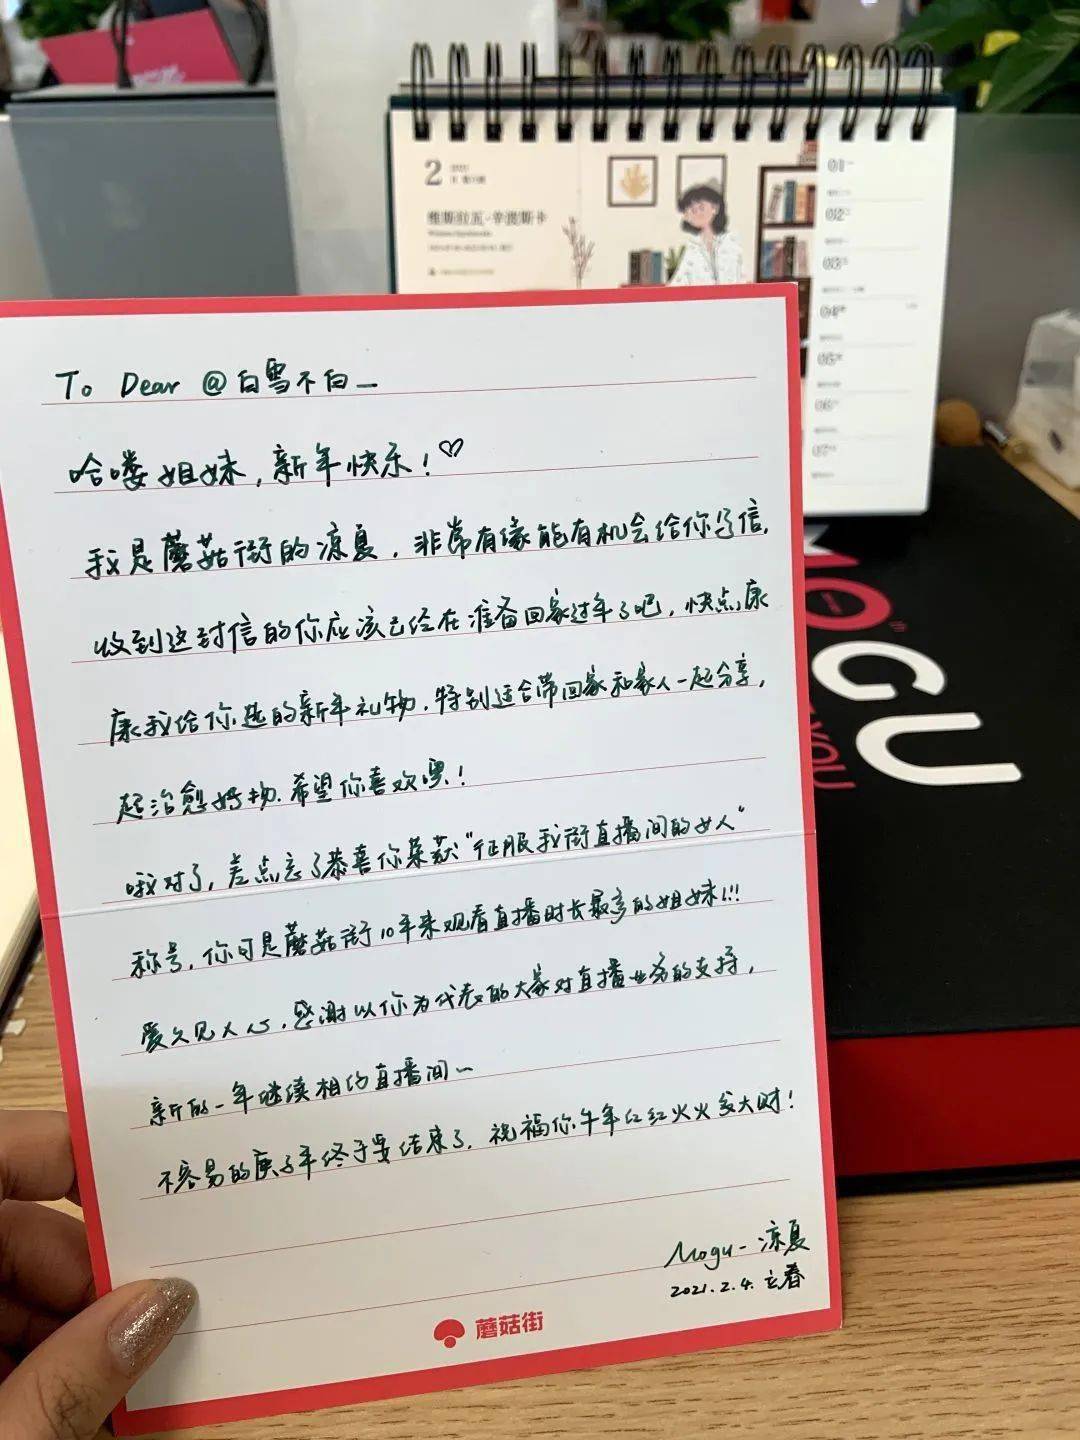 2
维斯拉瓦·辛波斯卡
01
02
03
04
05
06
07
To Dear @白雪不白_
哈喽姐妹,新年快乐!♡
我是蘑菇街的凉夏,非常有缘能有机会给你写信,
收到这封信的你应该已经在准备回家过年了吧,快点康
康我给你选的新年礼物,特别适合带回家和家人一起分享,
超治愈好物,希望你喜欢嘿!
哦对了,差点忘了恭喜你荣获“征服我街直播间的女人”
称号,你可是蘑菇街10年来观看直播时长最多的姐妹!!!
爱久见人心,感谢以你为代表的大家对直播业务的支持,
新的一年继续相约直播间~
不容易的庚子年终于要结束了,祝福你牛年红红火火发大财!
Mogu-凉夏
2021.2.4.立春
蘑菇街
MOGU
YOU